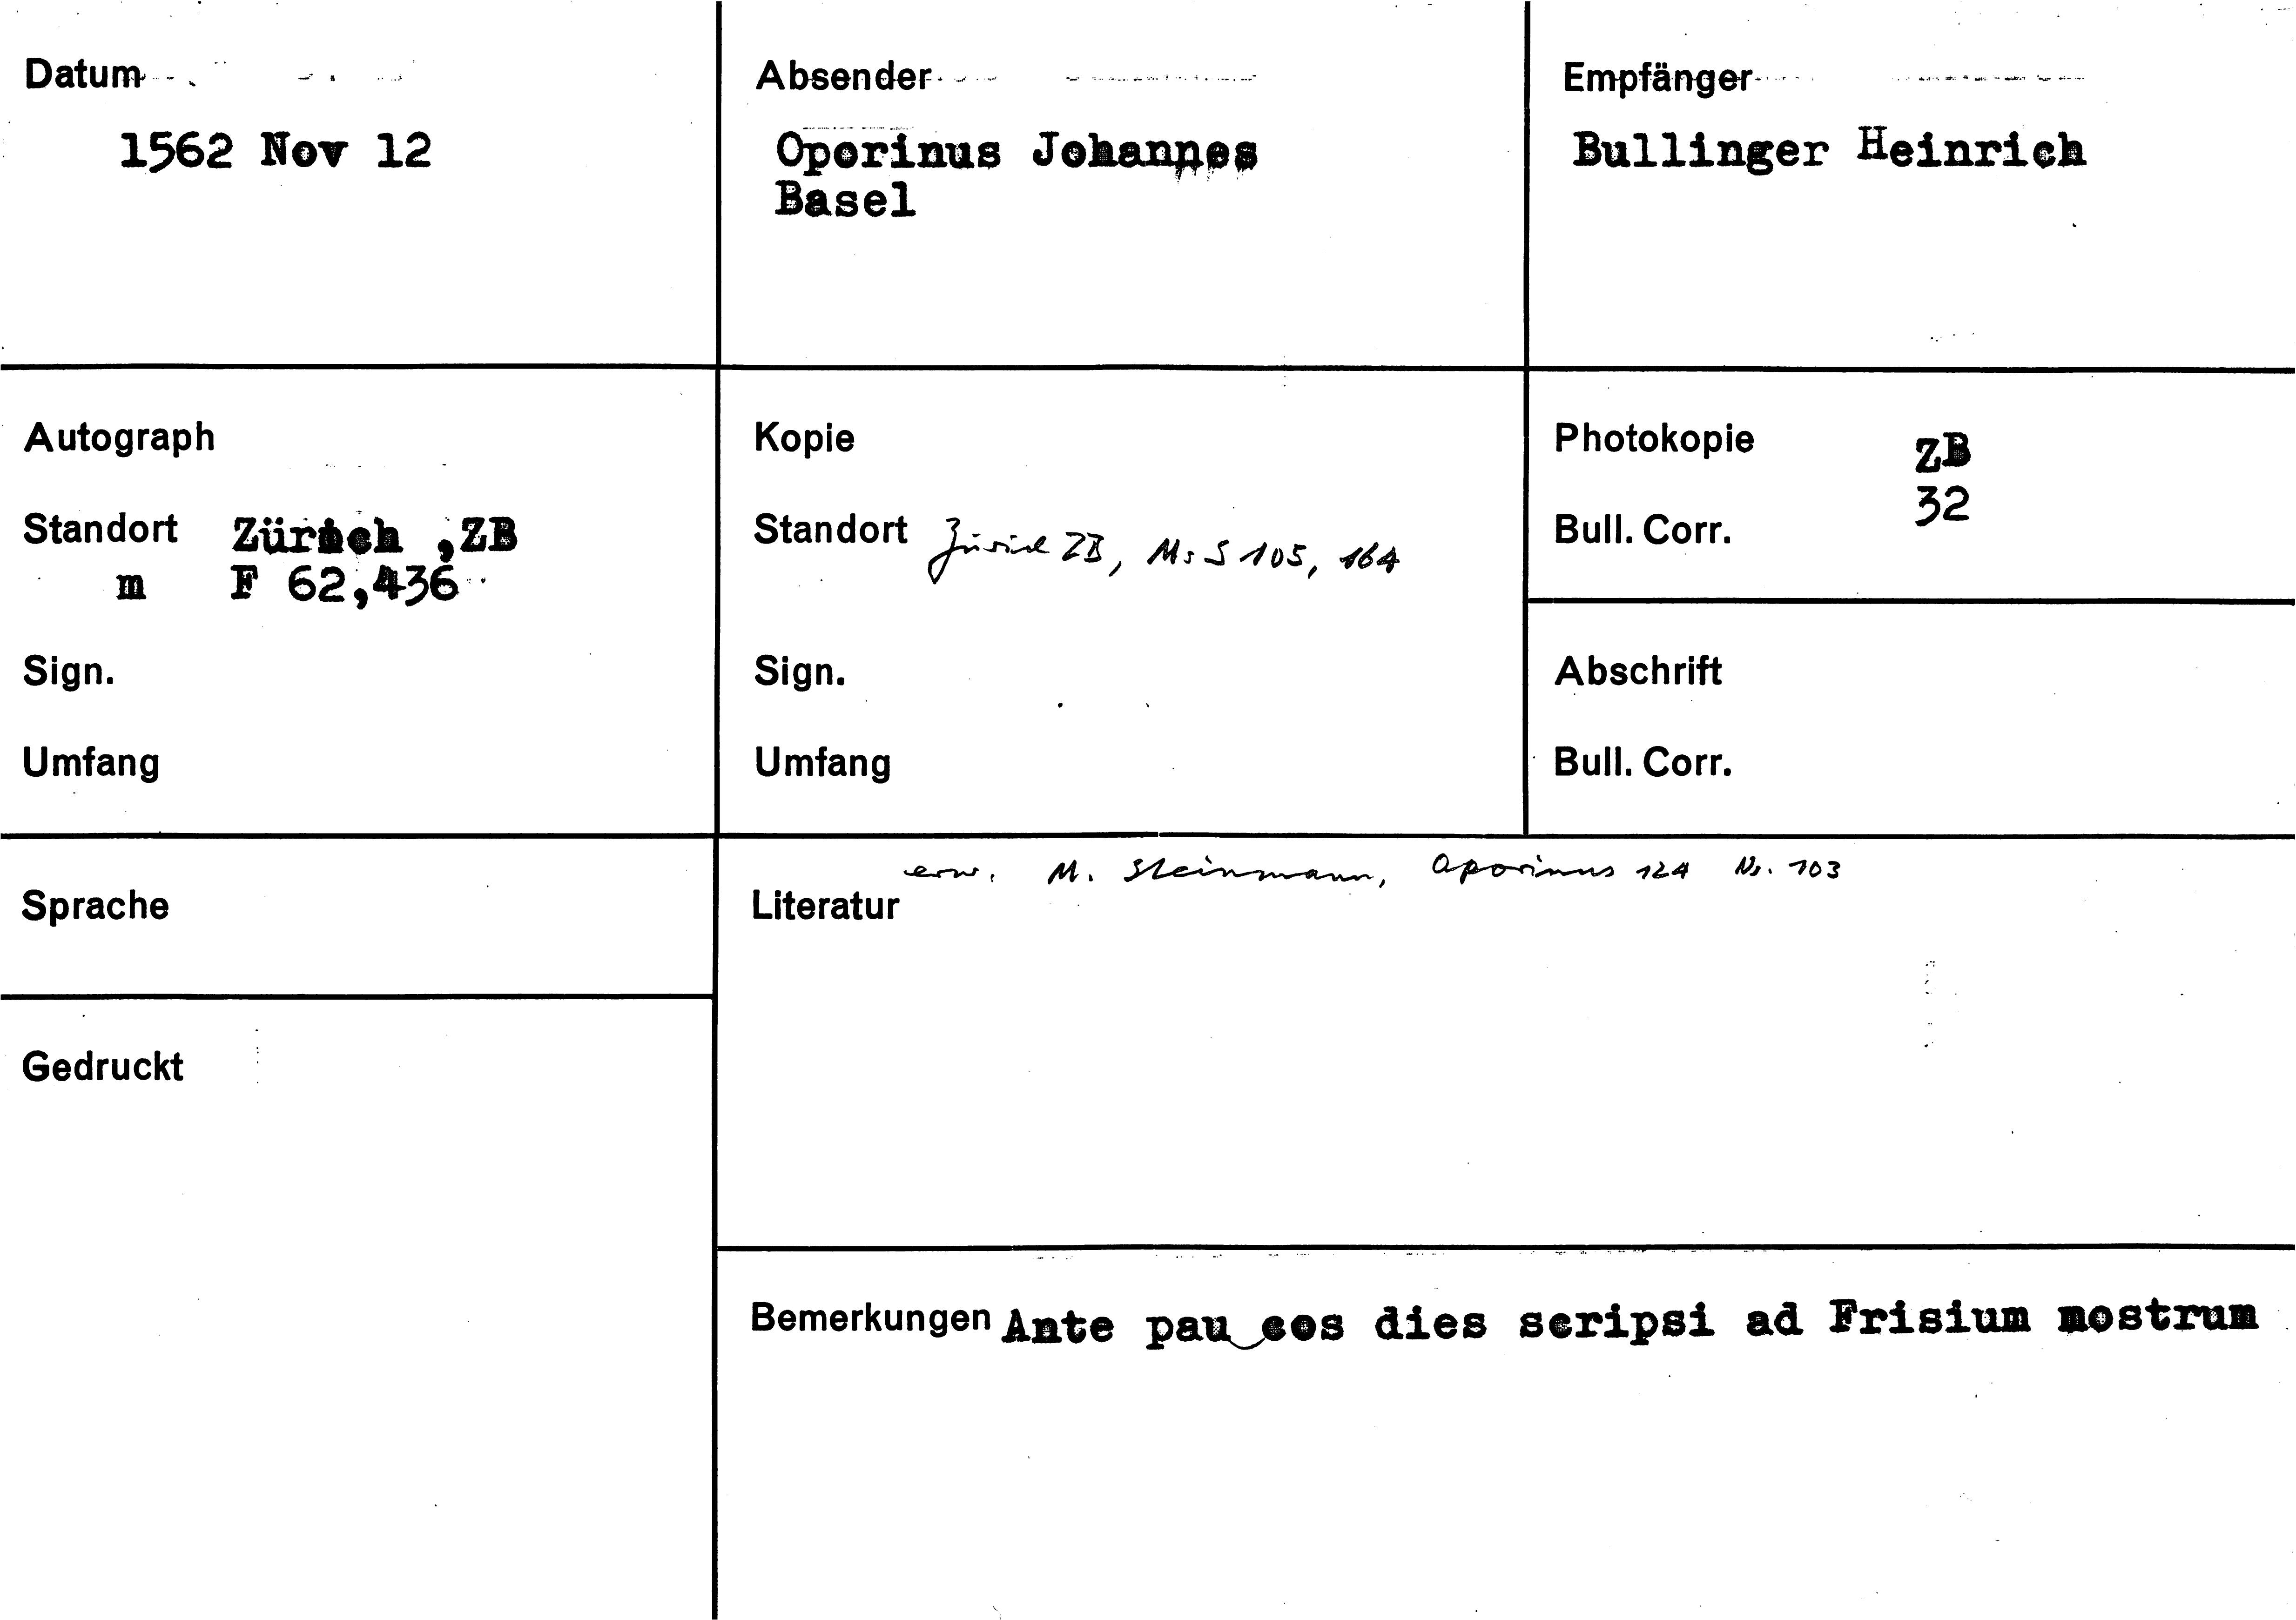 Datum
1562 Nov 12
Absender
Oporinus Johannes
Basel
Empfänger
Bullinger Heinrich
Autograph
Standort Zürich ,ZB
m F 62,436
Sign.
Umfang
Kopie
Standort Zürich ZB, Ms S 105, 164
Sign.
Umfang
Photokopie ZB
Bull. Corr. 32
Abschrift
Bull. Corr.
Sprache
Gedruckt
erw. M. Steinmann, Oporinus 124 Nr. 103
Literatur
Bemerkungen Ante pau cos dies scripsi ad Frisium nostrum